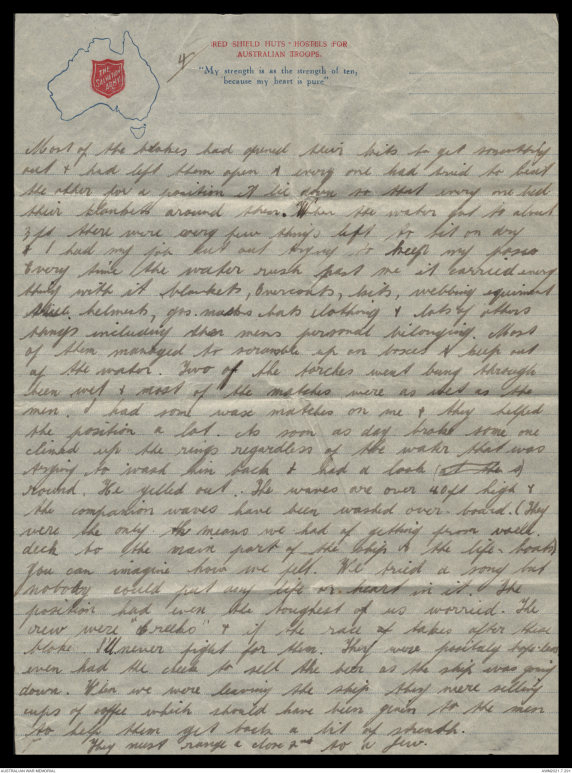 4
RED SHIELD HUTS - HOSTELS FOR
AUSTRALIAN TROOPS.
"My strength is as the strength of ten,
because my heart is pure"
THE
SALVATION
ARMY
Most of the blokes had opened their kits to get something
out & had left them open & every one had tried to beat
the other for a position to lie down so that every one had
their blankets around them. When the water got to about
3 ft there were very few things left to sit on dry
& I had my job cut out trying to keep my posso
Every time the water rush past me it carried every
thing with it blankets, Overcoats, kits, webbing equiment
steel helmets, gas masks hats clothing & lots of others
things including the mens personal belonging. Most
of them managed to scramble up on boxes & keep out
of the water. Two of the torches went bung through
been wet & most of the matches were as wet as the
men. I had some wase matches on me & they helped
the position a lot. As soon as day broke some one
climed up the rings regardless of the water that was
trying to wash him back & had a look (at the s)
round. He yelled out. The waves are over 40ft high &
the companion waves have been washed over-board. (They
were the only the means we had of getting from well
deck to the main part of the ship & the life-boats)
You can imagine how we felt. We tried a song but
nobody could put any life or heart in it. The
position had even the toughest of us worried. The
crew were "Greeks" & if the race takes after these
bloke I'll never fight for them. They were positaly
even had the cheek to sell the beer as the ship was going
down. When we were leaving the ship they were selling
cups of coffee which should have been given to the men
to help them get back a bit of strenth.
They must range a close 2nd to a Jew.
AUSTRALIAN WAR MEMORIAL
AWM2021.7.231